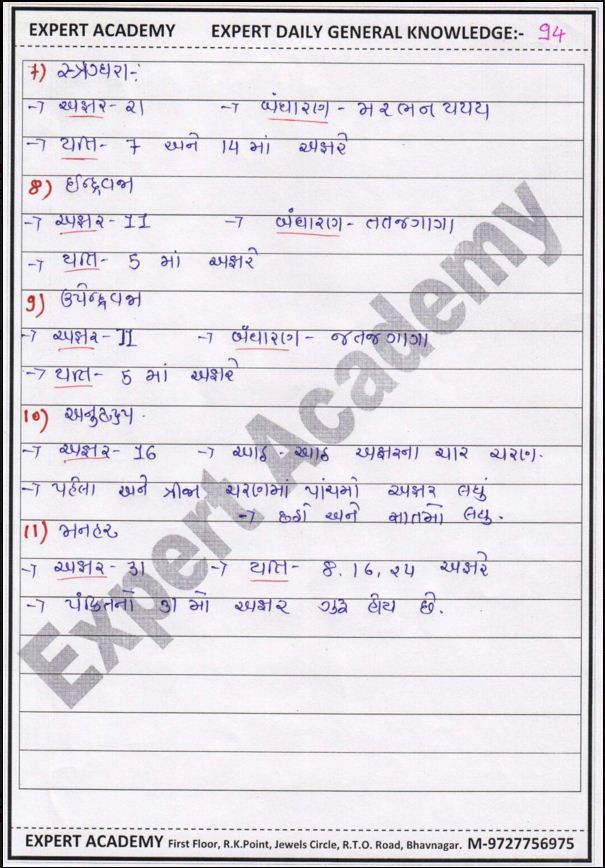 EXPERT ACADEMY EXPERT DAILY GENERAL KNOWLEDGE:- 94
7) સ્ત્રગ્ધરા-:
→ અક્ષર- ૨૧ → બંધારણ - મરભનયયય
→ યતિ- 7 અને 14 માં અક્ષરે
8) ઈન્દ્રવજ્રા
→ અક્ષર- 11 → બંધારણ- તતજગાગા
→ યતિ- 5 માં અક્ષરે
9) ઉપેન્દ્રવજ્રા
→ અક્ષર- 11 → બંધારણ- જતજગાગા
→ યતિ- 5 માં અક્ષરે
10) અનુષ્ટુપ.
→ અક્ષર- 16 → આઠ - આઠ અક્ષરના ચાર ચરણ.
→ પહેલા અને ત્રીજા ચરણમાં પાંચમો અક્ષર લઘું
→ છઠ્ઠો અને સાતમો લઘુ.
11) મનહર
→ અક્ષર- 31 → યતિ- 8, 16, ૨૪ અક્ષરે
→ પંક્તિનો ૩1 મો અક્ષર ગુરૂ હોય છે.
Expert Academy
EXPERT ACADEMY First Floor, R.K.Point, Jewels Circle, R.T.O. Road, Bhavnagar. M-9727756975